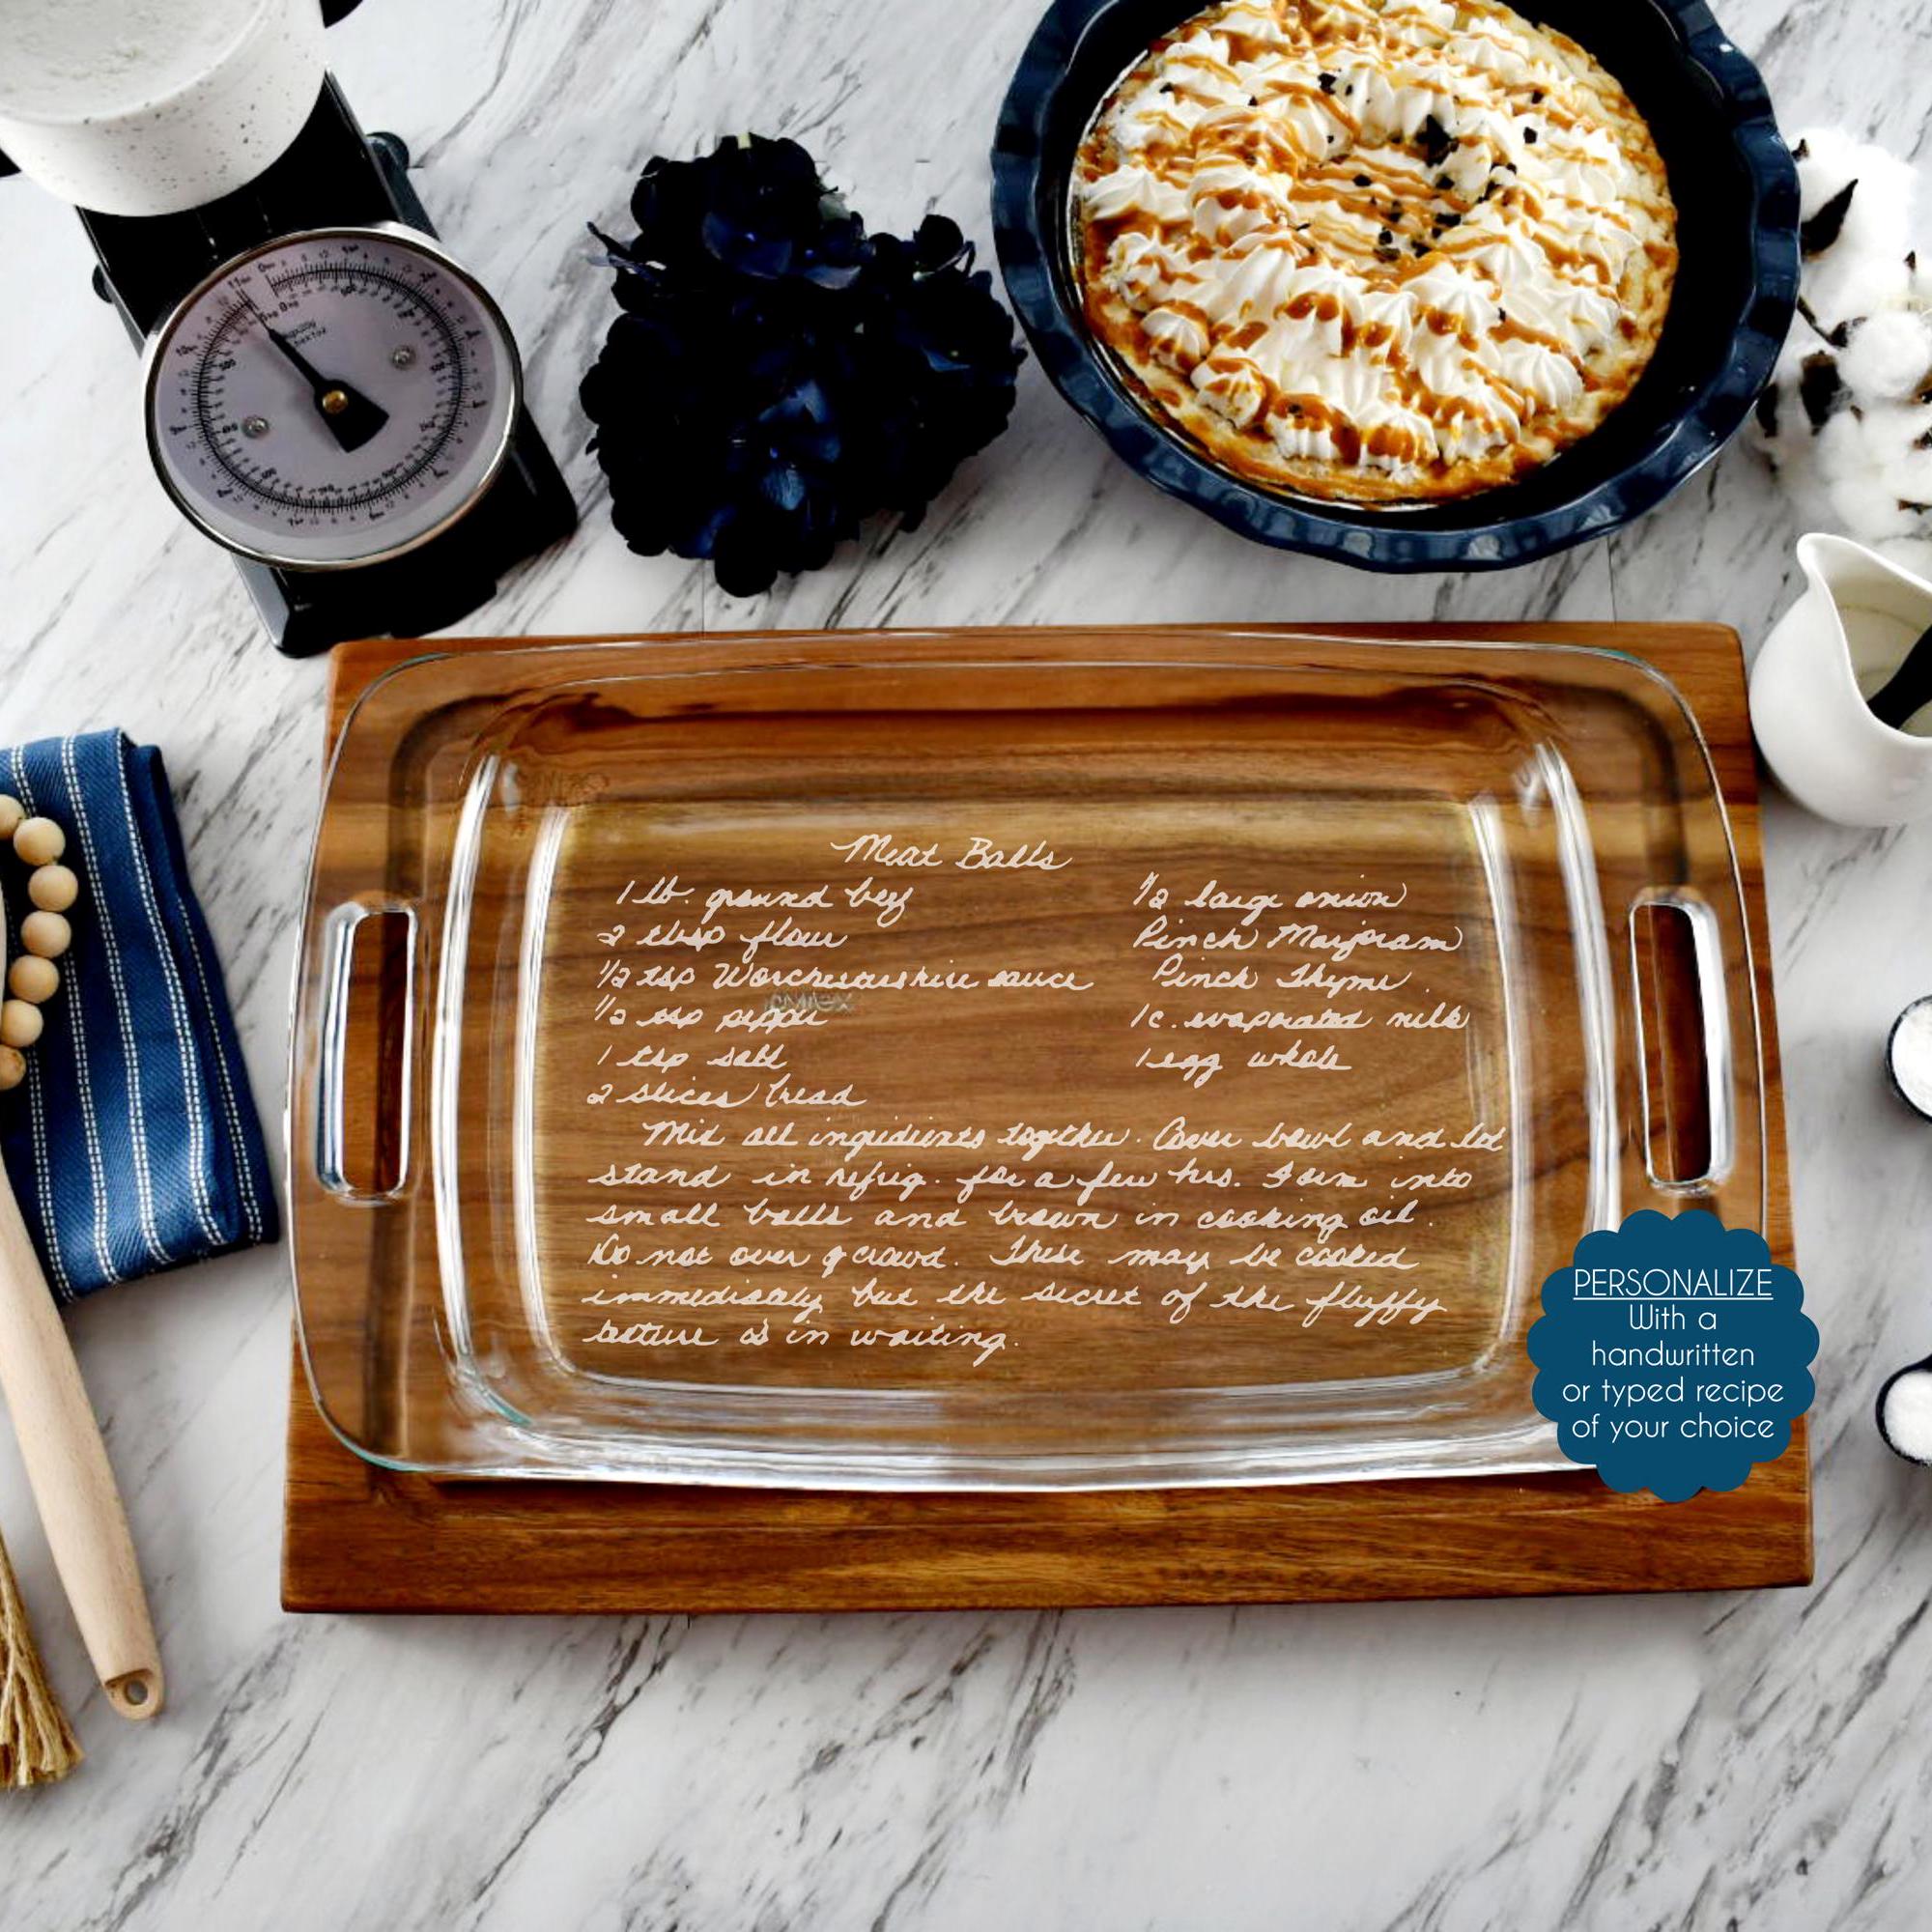 Meat Balls
1 lb. ground beef
2 tbsp flour
1/2 tsp Worchestershire sauce
1/2 tsp pepper
1 tsp salt
2 slices bread
1/2 large onion
Pinch Marjoram
Pinch Thyme
1 c. evaporated milk
1 egg whole
Mix all ingredients together. Cover bowl and let
stand in refrig. for a few hrs. Form into
small balls and brown in cooking oil.
Do not over crowd. These may be cooked
immediately but the secret of the fluffy
texture is in waiting.
PERSONALIZE
With a
handwritten
or typed recipe
of your choice